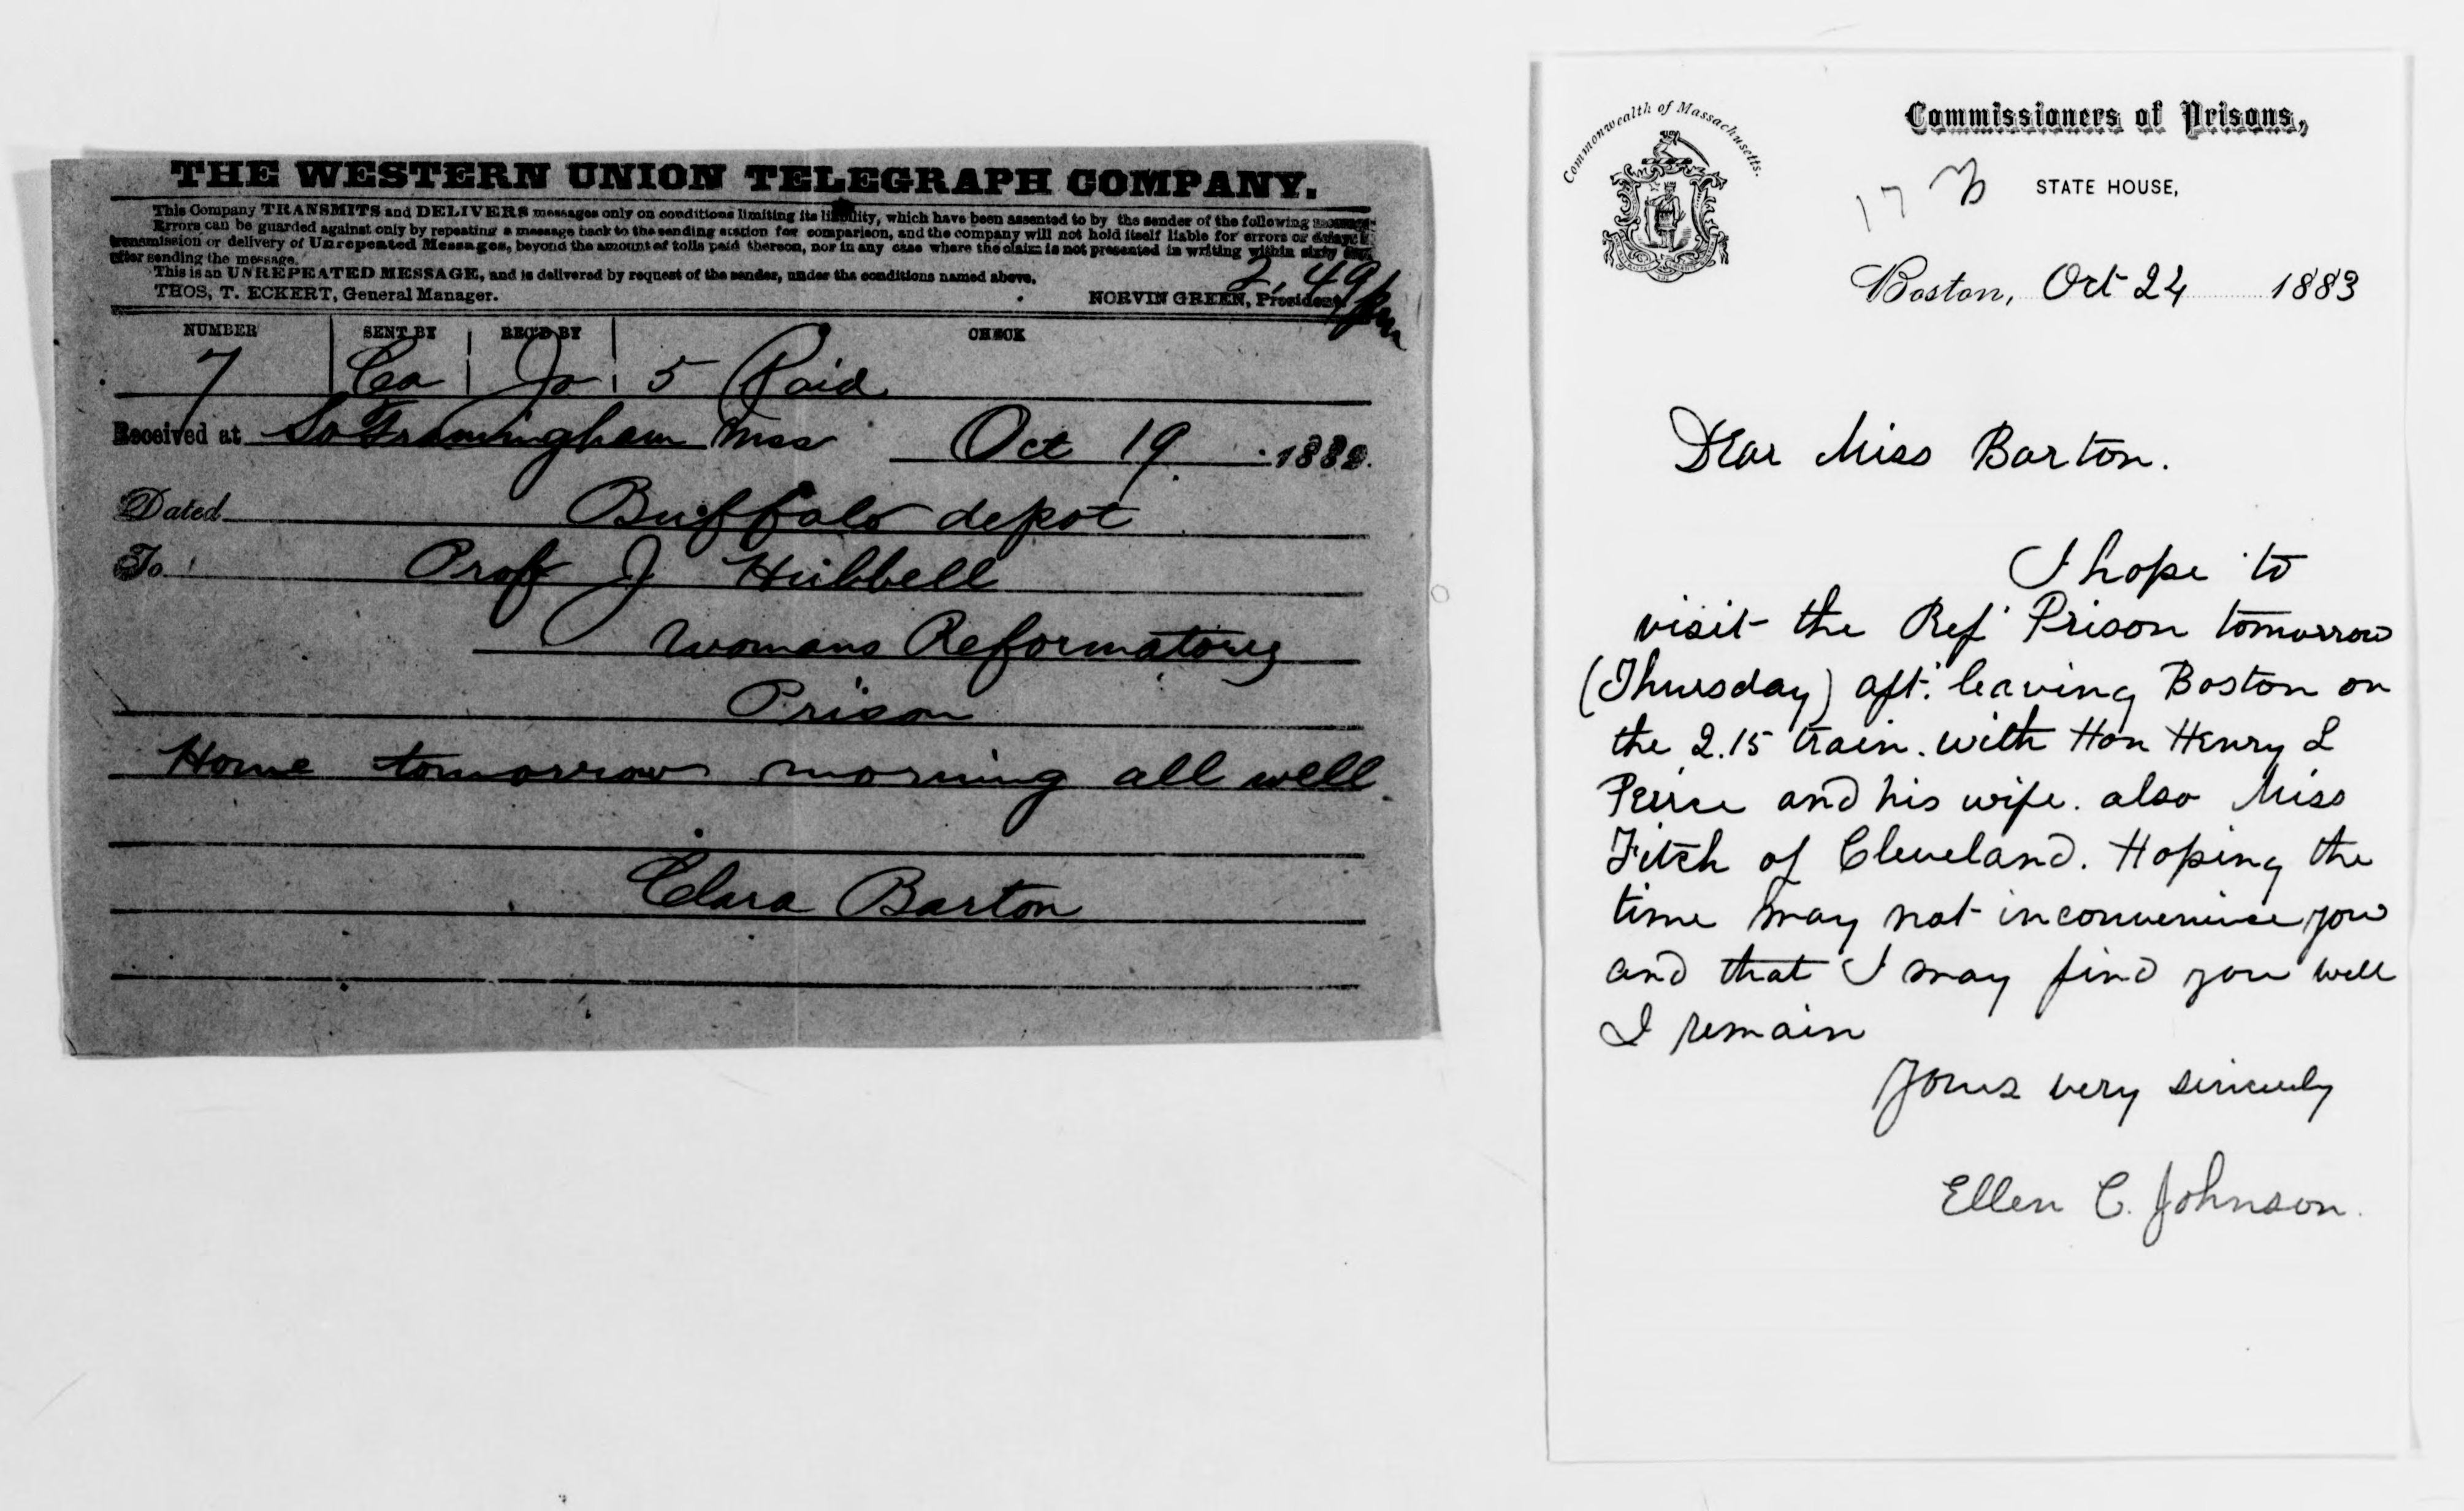 THE WESTERN UNION TELEGRAPH COMPANY.
This Company TRANSMITS and DELIVERS messages only on conditions limiting its liability, which have been assented to by the sender of the following
Errors can be guarded against only by repeating a message back to the sending station for comparison, and the company will not hold itself liable for errors or delays
transmission or delivery of Unrepeated Messages, beyond the amount of tolls paid thereon, nor in any case where the claim is not presented in writing within sixty
after sending the message.
This is an UNREPEATED MESSAGE, and is delivered by request of the sender, under the conditions named above.
2,49 pm
THOS, T. ECKERT, General Manager. NORVIN GREEN, President.
NUMBER SENT BY REC'D BY CHECK
7 Ca Jo 5 Paid
Received at So Framingham Mss Oct 19 188
Dated Buffalo depot
To Prof J Hubbell
Womans Reformatory
Prison
Home tomorrow morning all well
Clara Barton
Commonwealth of Massachusetts.
Commissioners of Prisons,
17 STATE HOUSE,
Boston, Oct 24 1883
Dear Miss Barton.
I hope to
visit the Ref Prison tomorrow
(Thursday) aft. leaving Boston on
the 2.15 train. with Hon Henry L
and his wife. also Miss
Fitch of Cleveland. Hoping the
time may not inconvenience you
and that I may find you well
I remain
Yours very sincerely
Ellen C. Johnson.